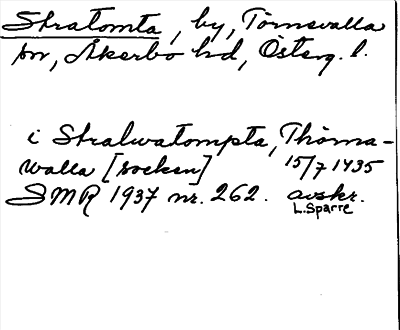 Stratomta, by, Törnevalla
sn, Åkerbo hd, Österg. l.
i Stralwatompta, Thörna-
walla [socken] 15/7 1435
SMR 1937 nr. 262. avskr.
L. Sparre